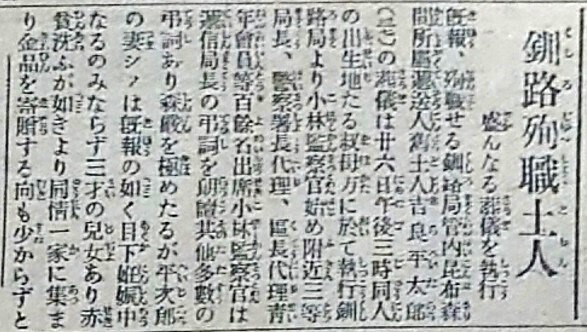 釧路殉職土人
盛んなる葬儀を執行
既報、殉職せる釧路局管内昆布森
間所屬遞送人舊土人吉良平太郎
の葬儀は廿六日午後三時同人
の出生地たる叔母方に於て執行釧
路局より小林監察官始め附近三等
局長、警察署長代理、區長代理靑
年會員等百餘名出席小林監察官は
遞信局長の弔詞を朗讀其他多數の
弔詞あり森嚴を極めたるが平次郎
の妻シノは既報の如く目下姙娠中
なるのみならず三才の兒女あり赤
貧洗ふが如きより同情一家に集ま
り金品を寄贈する向も少からずと